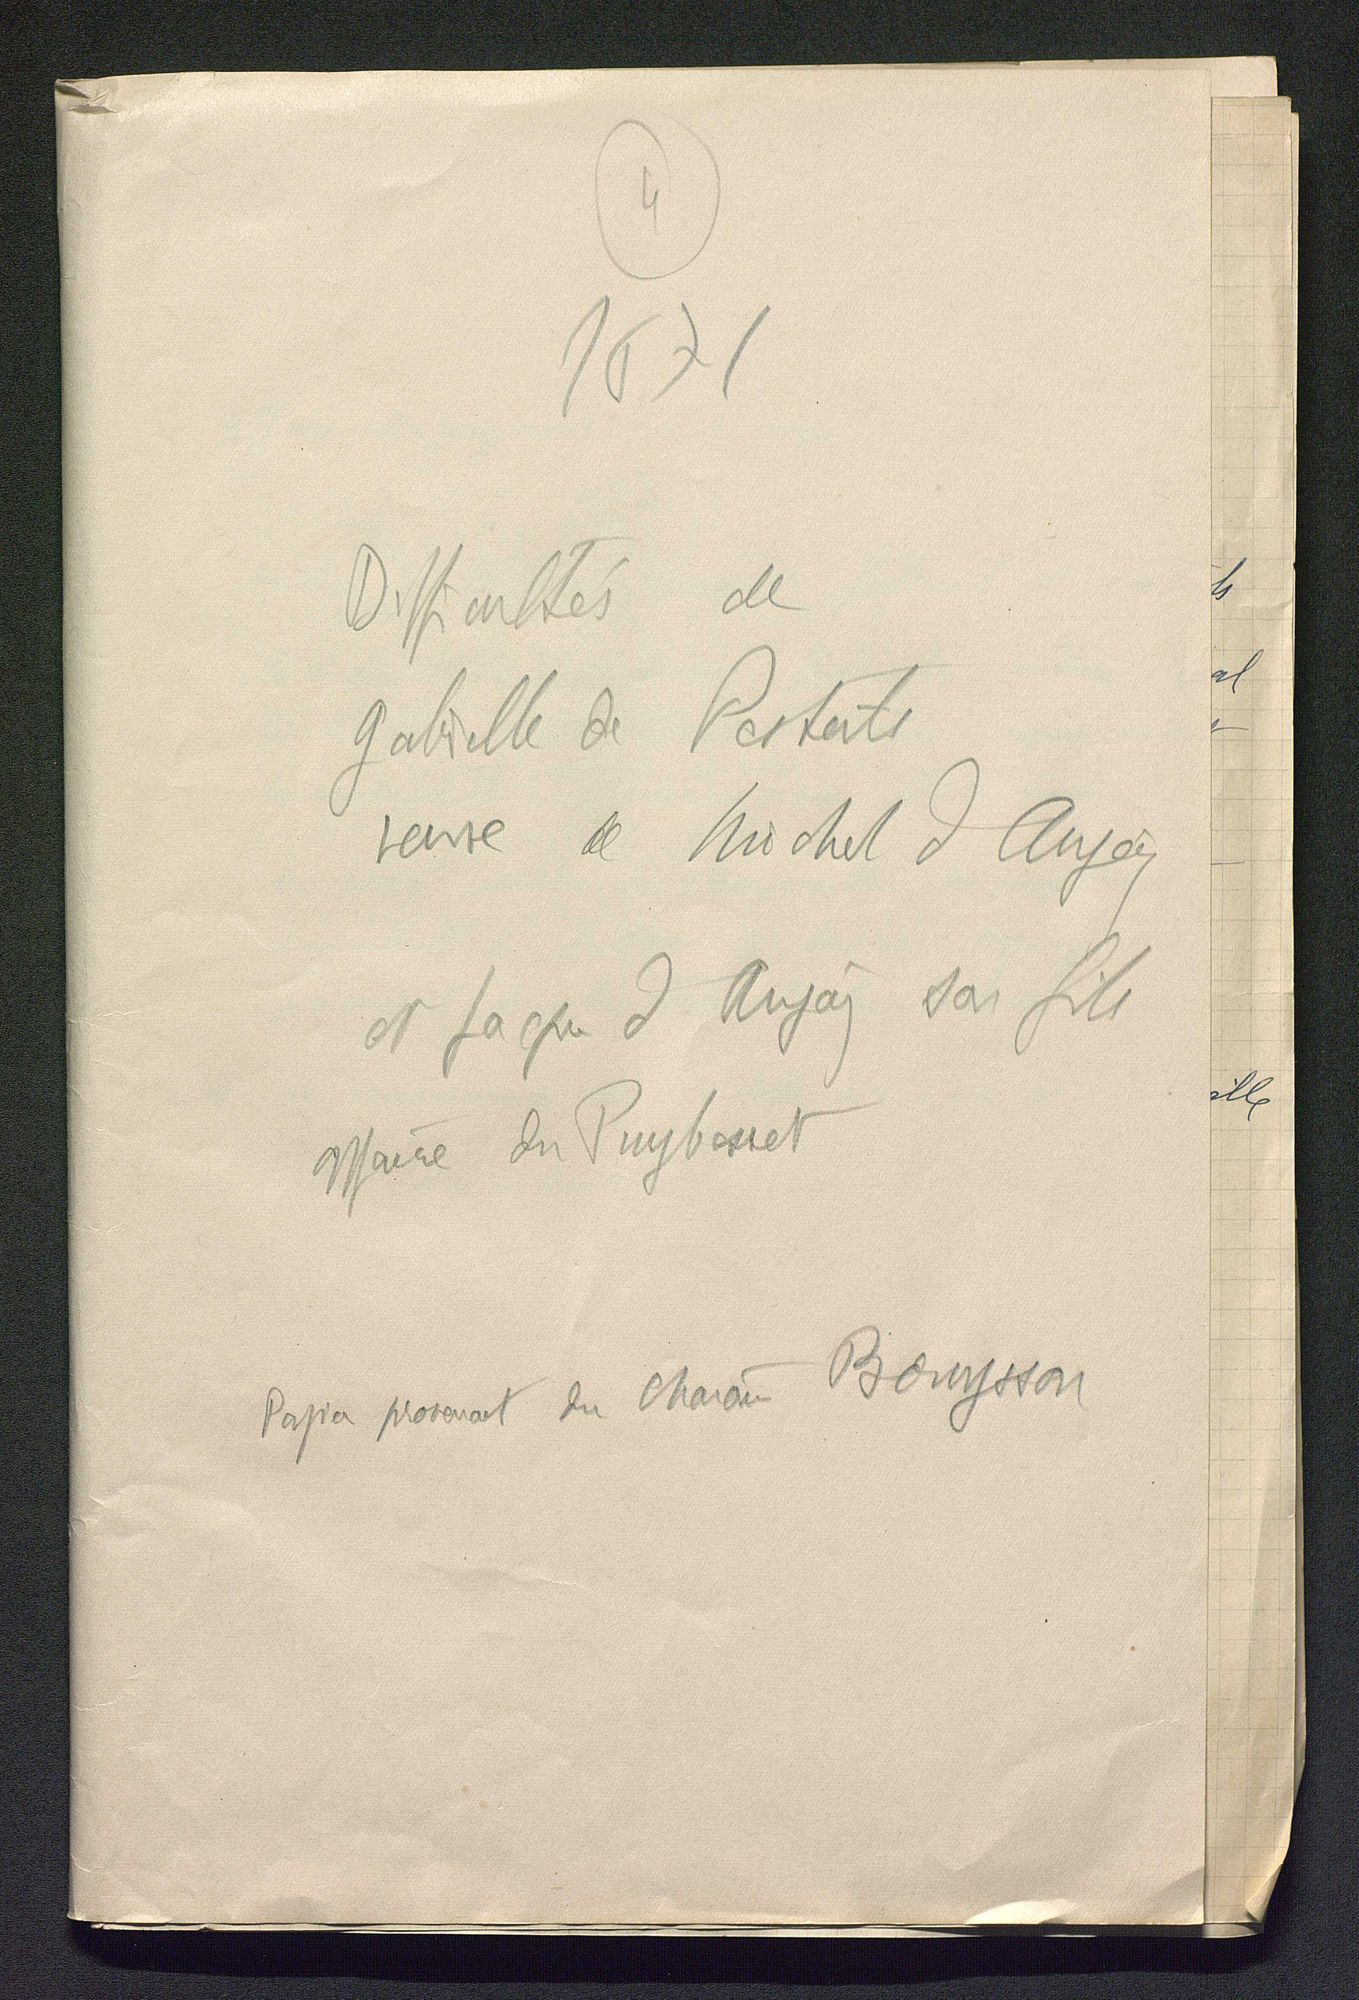 4
1671
Difficultés de
Gabrielle de
veuve de Michel d'Anjou
et Jacques d'Anjou son fils
affaire du Puybasset
Papier provenant du Chanoine Bouysson
ts
al
ille